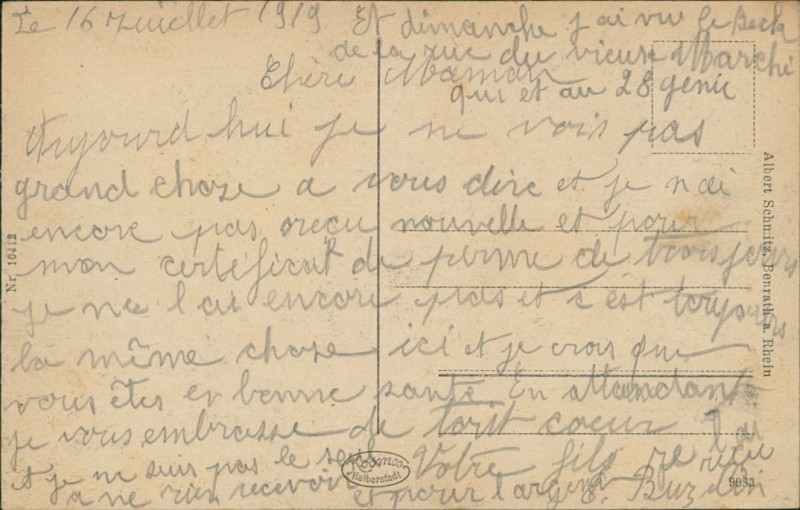 Le 16 Juillet 1919 Et dimanche j ai vu le Beck
de la rue du vieux Marché
Chère Maman qui et au 28 génie
Aujourd hui je ne vois pas
grand choze a vous dire et je n ai
encore pas reçu nouvelle et pour
mon certéficat de perme de trois jours
je ne l ai encore pas et s est toujours
la même choze ici et je crois que
vous êtes en bonne santé. En attandant
je vous embrasse de tout cœur J ai
Votre fils re reçu
et je ne suis pas le seul
a ne rien recevoir et pour l argent E. Buzdin
Kosmos
Halberstadt
9933
Nr. 10412
Albert Schmitz, Benrath a. Rhein